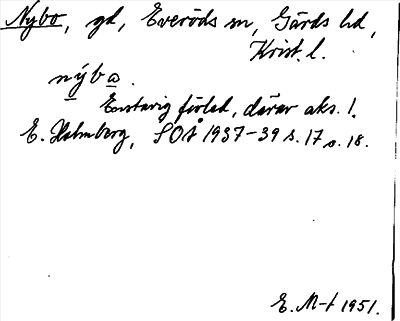 Nybo, gd, Everöds sn, Gärds hd,
Krist. l.
nýbo.
Enstavig förled, därav aks. 1.
E. Holmberg, SOÅ 1937-39 s. 17 o. 18.
E. M-t 1951.